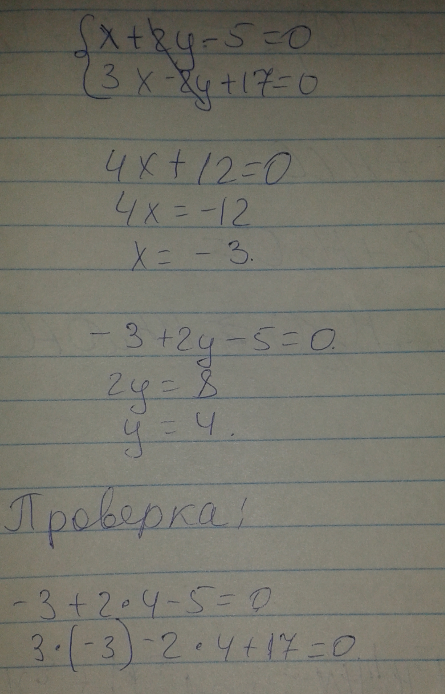 {x+2y-5=0
3x-2y+17=0
4x+12=0
4x=-12
x=-3.
-3+2y-5=0.
2y=8
y=4.
Проверка!
-3+2·4-5=0
3·(-3)-2·4+17=0